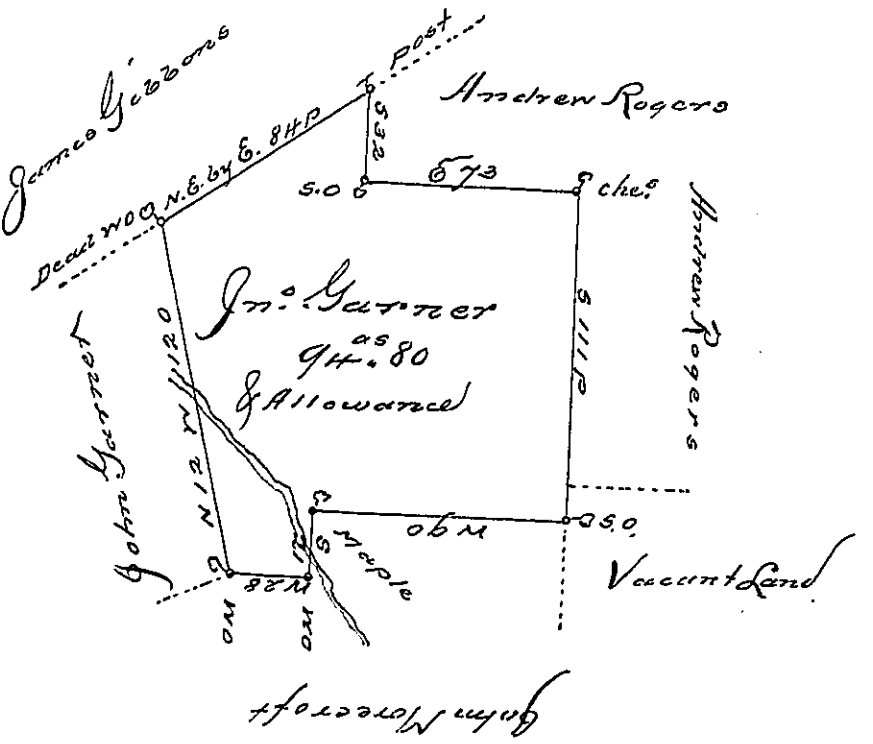 James Gibbons
Post
Andrew Rogers
Dead WO N.E. by E. 84P
S 32
S.O
E 73
ches.
Andrew Rogers
S 111 P
Jno. Garner
94 as. 80
& Allowance
John Garner
N 12 W 120
Maple
S 21
W 90
S.O.
Vacant Land
W 28
WO
WO
John Morecroft